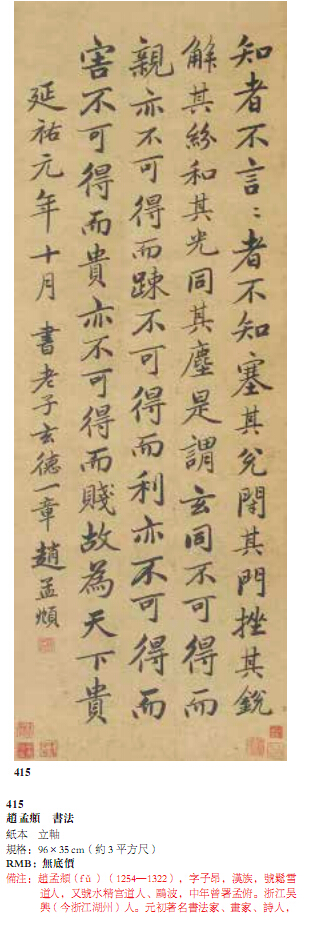 知者不言〻者不知塞其兌閇其門挫其銳
解其紛和其光同其塵是謂玄同不可得而
親亦不可得而踈不可得而利亦不可得而
害不可得而貴亦不可得而賤故為天下貴
延祐元年十月書老子玄德一章趙孟頫
415
415
趙孟頫 書法
紙本 立軸
規格：96×35cm（約3平方尺）
RMB：無底價
備注：趙孟頫（fǔ）（1254—1322），字子昂，漢族，號鬆雪
道人，又號水精宮道人、鷗波，中年曾署孟俯。浙江吴
興（今浙江湖州）人。元初著名書法家、畫家、詩人，